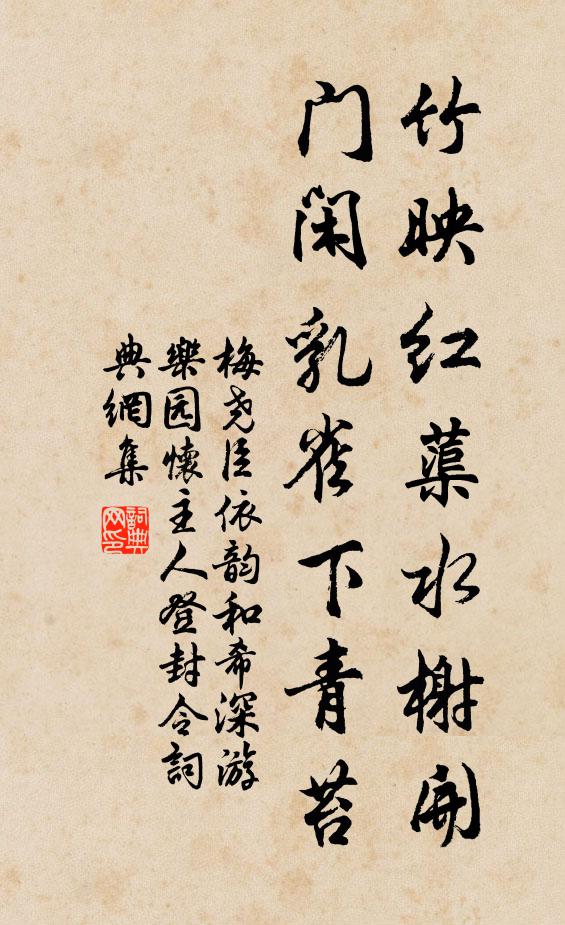 竹映红蕖水榭开
门闲乳雀下青苔
梅尧臣依韵和希深游
樂园懷主人登封令詞
典網集
詞典網印